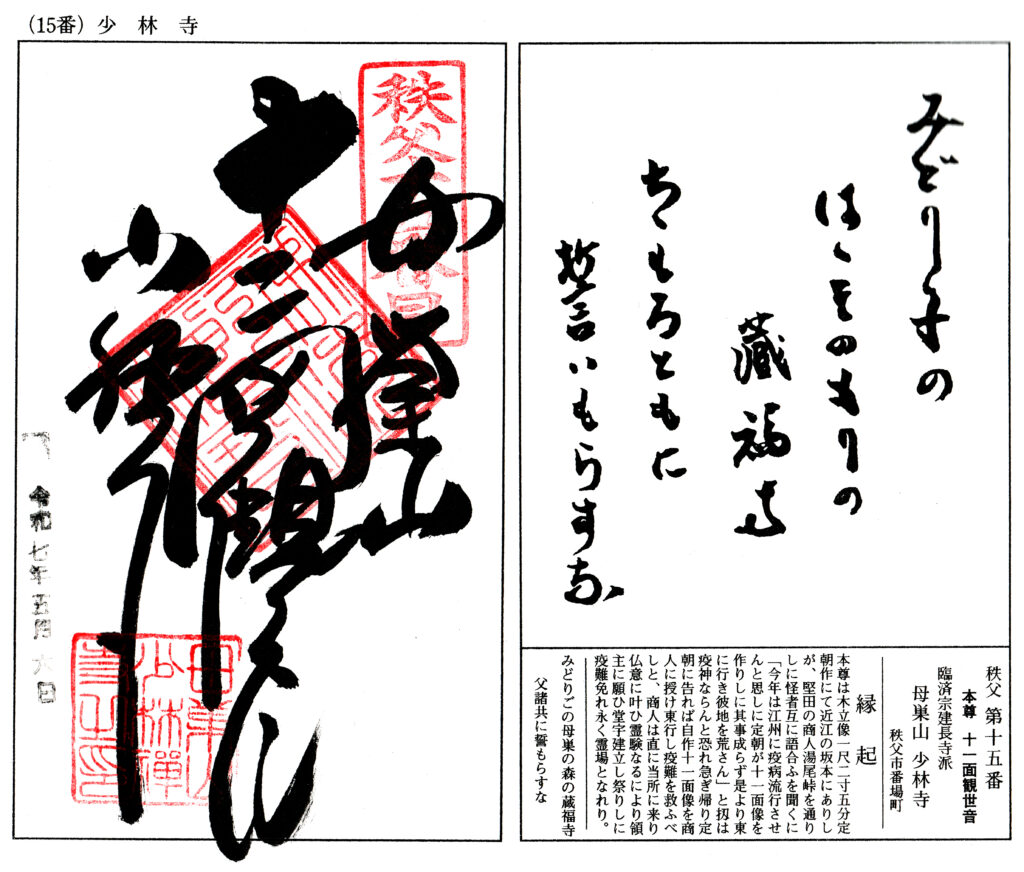 （15番）少林寺
みどり子の
はゝその森の
蔵福寺
ちゝもろともに
誓いもらすな
秩父 第十五番
本尊 十一面観世音
臨済宗建長寺派
母巣山 少林寺
秩父市番場町
縁起
本尊は木立像一尺二寸五分定
朝作にて近江の坂本にありし
が、堅田の商人湯尾峠を通り
しに怪者互に語合ふを聞くに
「今年は江州に疫病流行させ
んと思しに定朝が十一面像を
作りしに其事成らず是より東
に行き彼地を荒さん」と扨は
疫神ならんと恐れ急ぎ帰り定
朝に告れば自作十一面像を商
人に授け東行し疫難を救ふべ
しと、商人は直に当所に来り
仏意に叶ひ霊験なるにより領
主に願ひ堂宇建立し祭りしに
疫難免れ永く霊場となれり。
みどりごの母巣の森の蔵福寺
父諸共に誓もらすな
十一面観世音
少林寺
令和七年五月六日